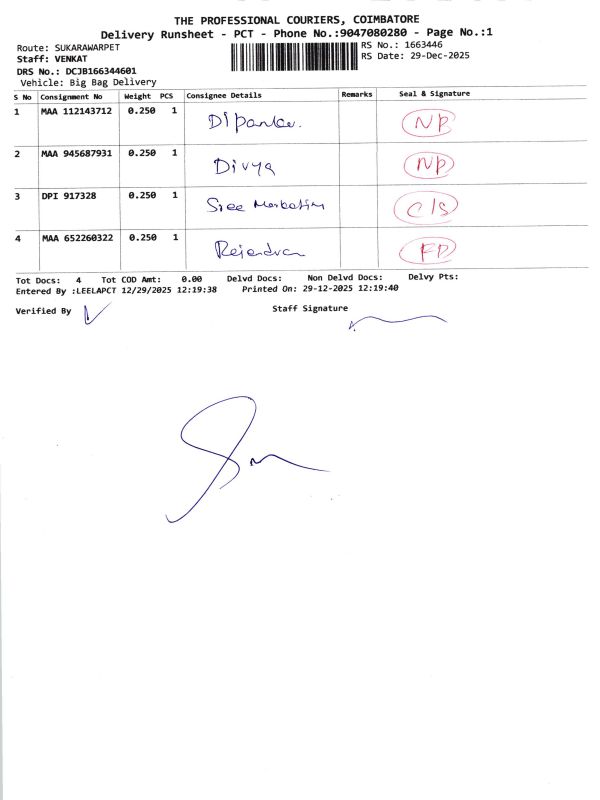 THE PROFESSIONAL COURIERS, COIMBATORE
Delivery Runsheet - PCT - Phone No.:9047080280 - Page No.:1
Route: SUKARAWARPET RS No.: 1663446
Staff: VENKAT RS Date: 29-Dec-2025
DRS No.: DCJB166344601
Vehicle: Big Bag Delivery
S No Consignment No Weight PCS Consignee Details Remarks Seal & Signature
1 MAA 112143712 0.250 1 Dipankar. NP
2 MAA 945687931 0.250 1 Divya NP
3 DPI 917328 0.250 1 Sree Marketing C/S
4 MAA 652260322 0.250 1 Rajendran FD
Tot Docs: 4 Tot COD Amt: 0.00 Delvd Docs: Non Delvd Docs: Delvy Pts:
Entered By :LEELAPCT 12/29/2025 12:19:38 Printed On: 29-12-2025 12:19:40
Verified By Staff Signature